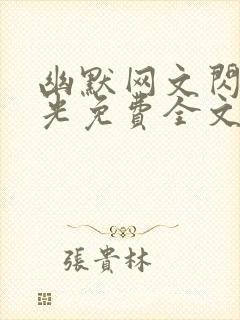 幽默网文閃
光免費全文
張貴林